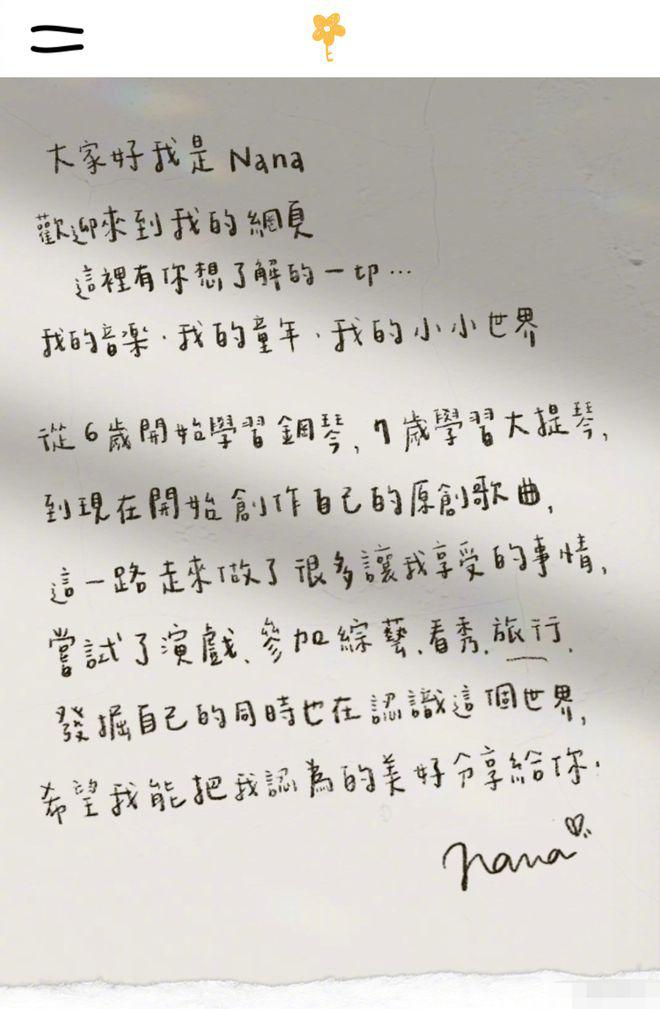 大家好我是 Nana
歡迎來到我的網頁
這裡有你想了解的一切…
我的音楽·我的童年·我的小小世界
從6歲開始學習鋼琴,7歲學習大提琴,
到現在開始創作自己的原創歌曲,
這一路走來做了很多讓我享受的事情,
嘗試了演戲、參加綜藝、看秀、旅行、
發掘自己的同時也在認識這個世界,
希望我能把我認為的美好分享給你.
nana